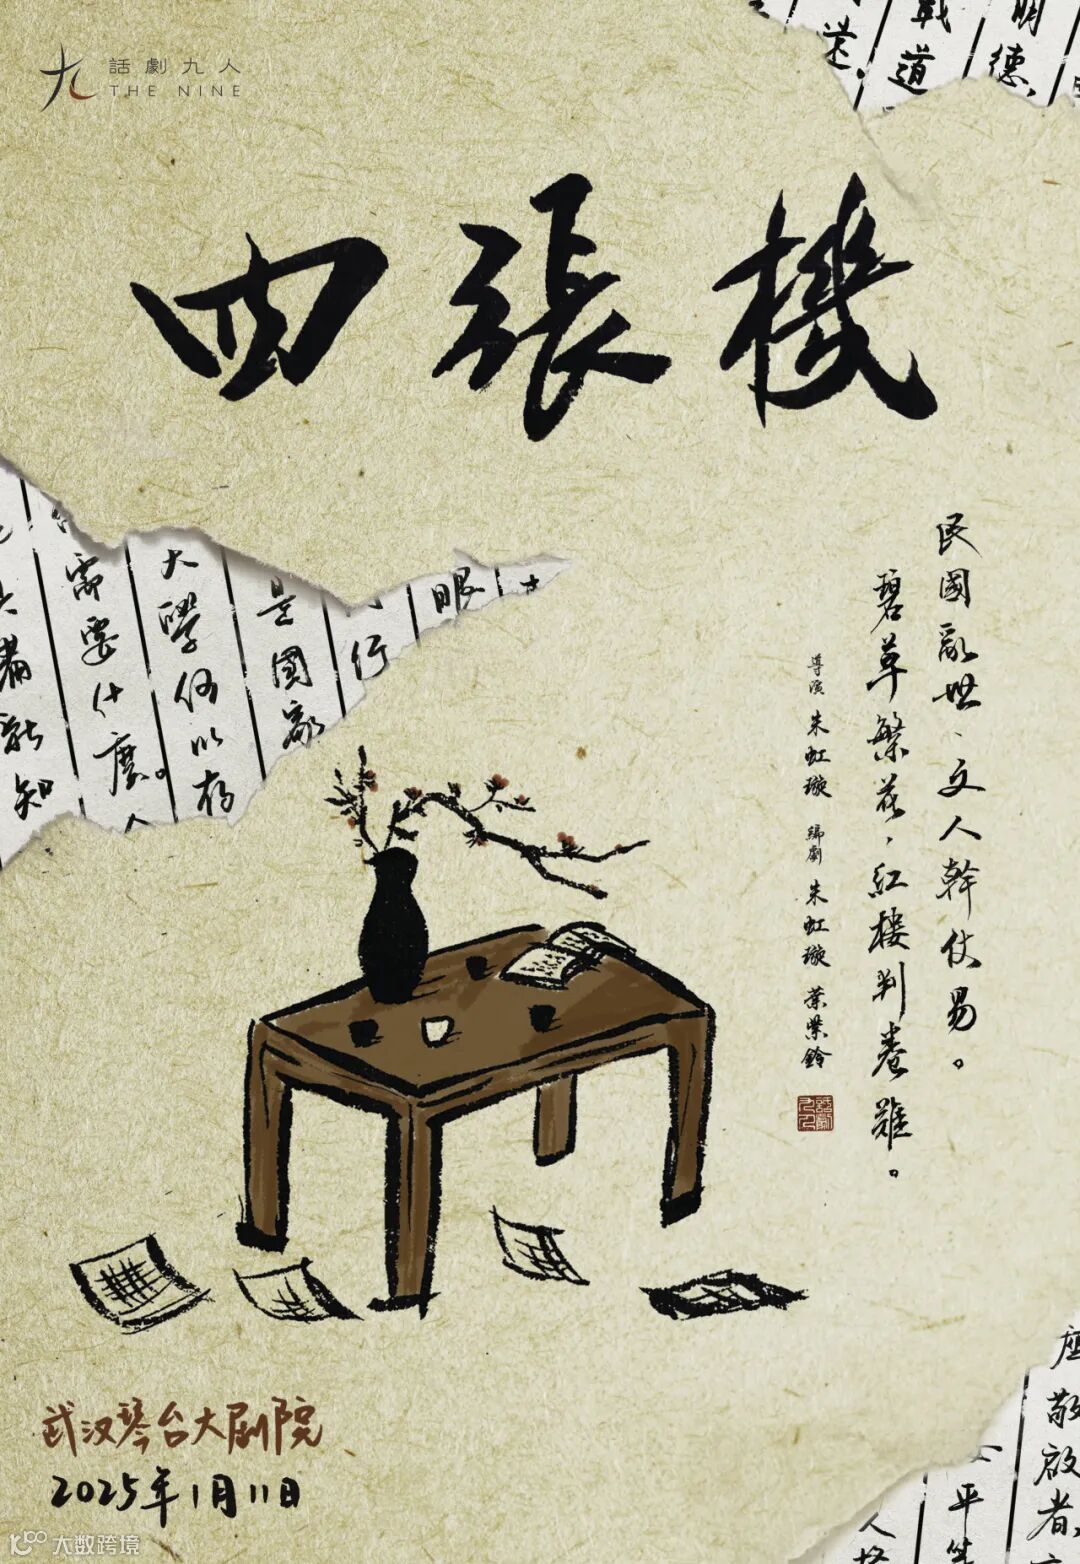 話劇九人
THE NINE
送。
戰道
明德，
四張機
民國亂世、文人幹仗易。
碧草繁花，紅樓判卷難。
導演 朱虹璇 編劇 朱虹璇 葉紫鈴
話劇九人
眼
行
是國家
大學何以存
需要什麼。人
備新知
武汉琴台大剧院
2025年1月11日
座敬啟者，
平等
人格
大数跨境